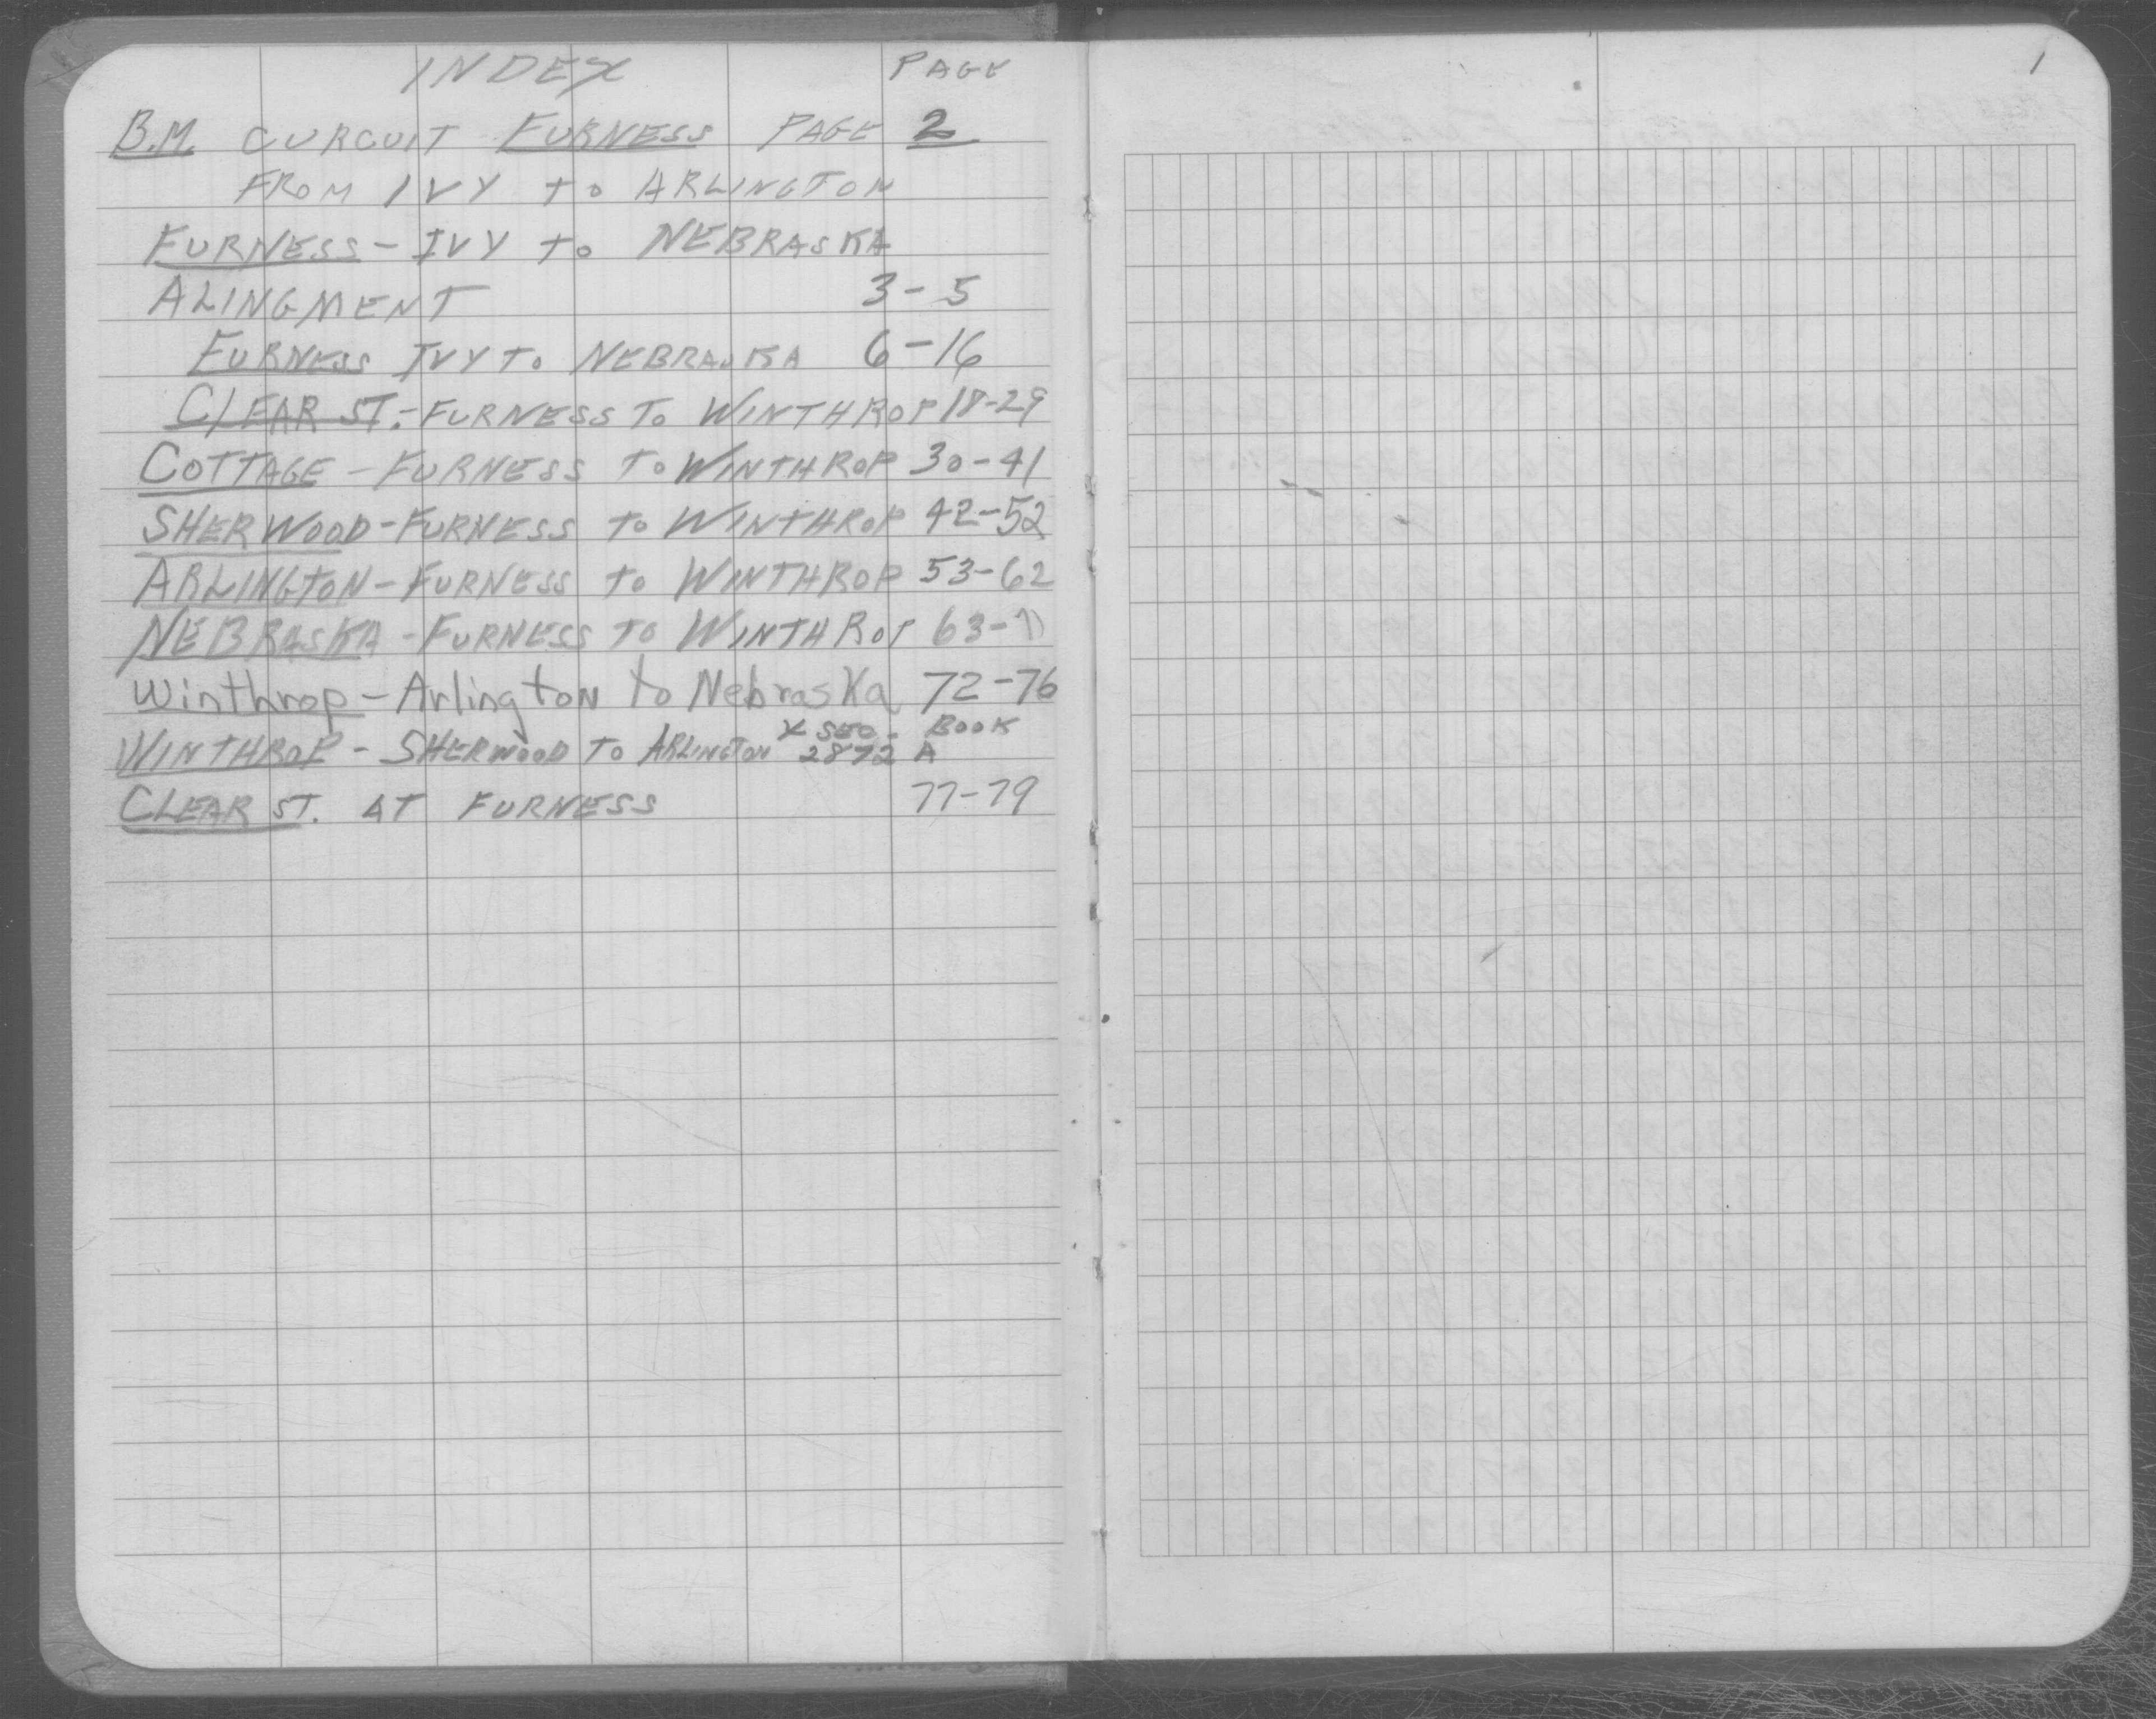 INDEX PAGE
B.M. CURCUIT FURNESS PAGE 2
FROM IVY to ARLINGTON
FURNESS - IVY to NEBRASKA
ALINGMENT 3-5
FURNESS IVY To NEBRASKA 6-16
ClEAR ST. - FURNESS To WINTHROP 18-29
COTTAGE - FURNESS To WINTHROP 30-41
SHERWOOD - FURNESS To WINTHROP 42-52
ARLINGTON - FURNESS to WINTHROP 53-62
NEBRASKA - FURNESS TO WINTHROP 63-
Winthrop - Arlington to Nebraska 72-76
X SEO. BOOK
WINTHROP - SHERWOOD TO ARLINGTON 2872 A
CLEAR ST. AT FURNESS 77-79
1